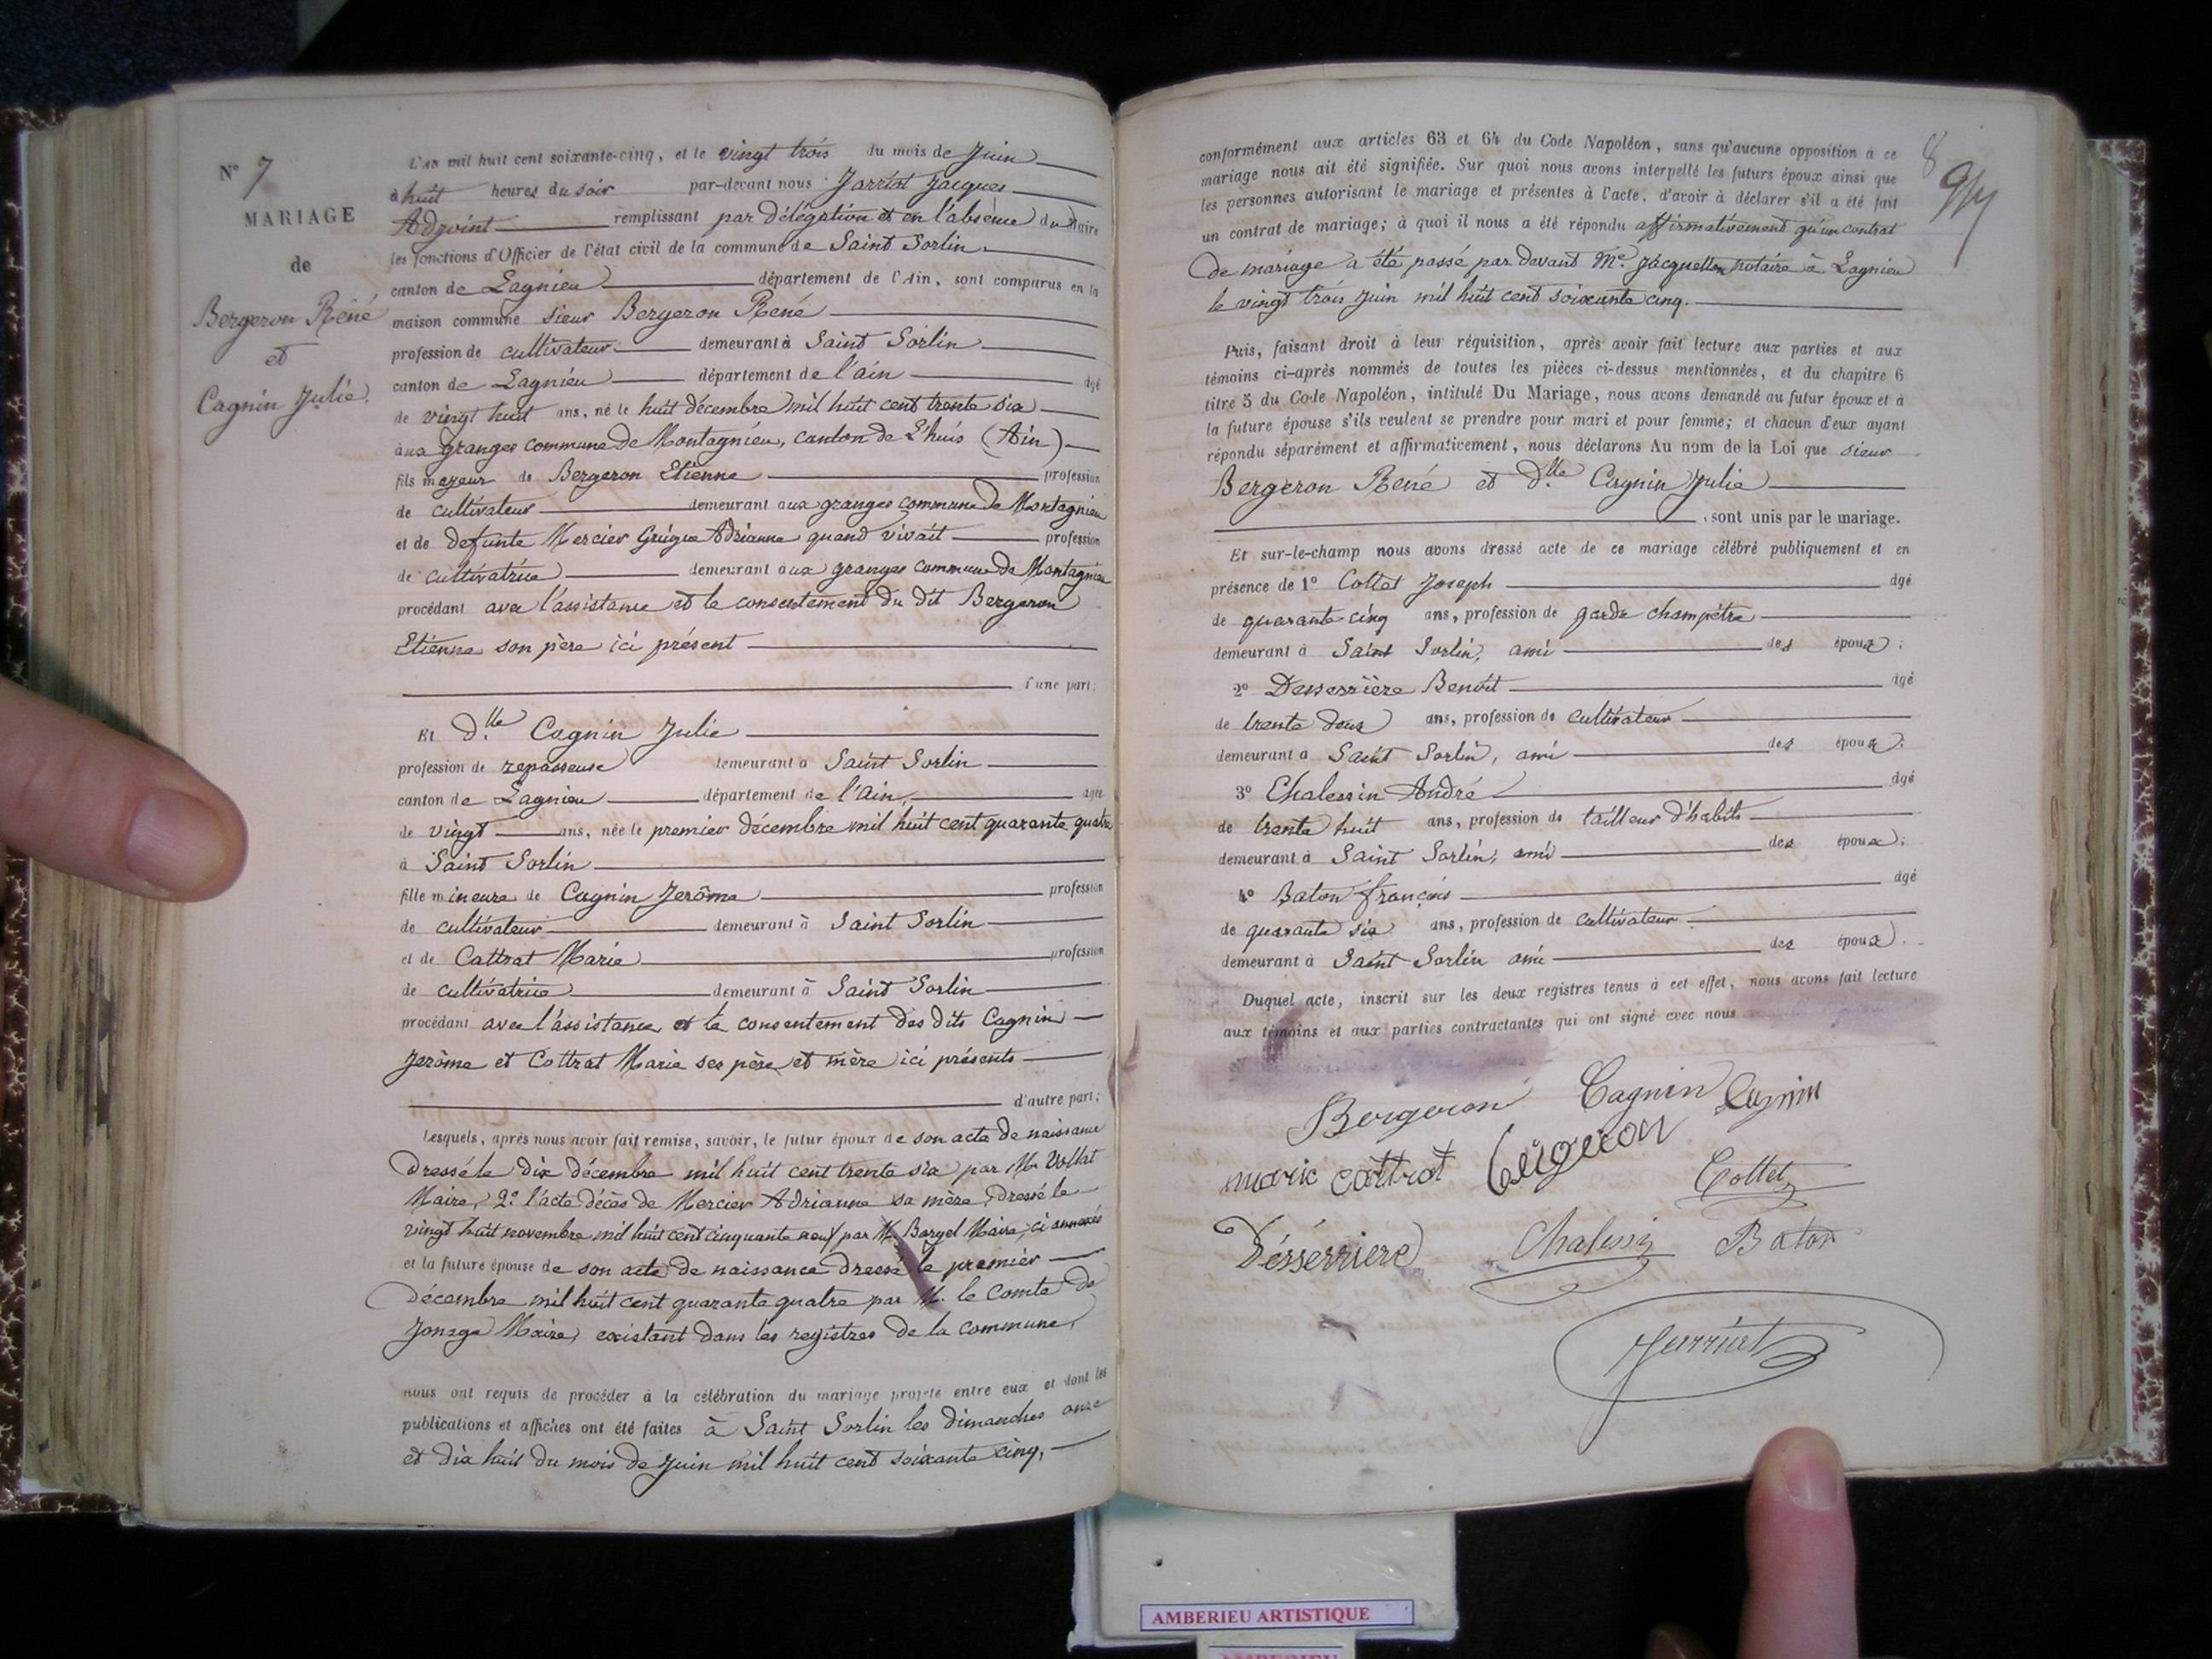 N° 7
MARIAGE
de
Bergeron René
et
Cagnin Julie.
L'an mil huit cent soixante-cinq, et le vingt trois du mois de Juin
à huit heures du soir par-devant nous Jarriat Jacques
Adjoint remplissant par délégation et en l'absence du Maire
les fonctions d'Officier de l'état civil de la commune de Saint Sorlin
canton de Lagnieu département de l'Ain, sont comparus en la
maison commune sieur Bergeron René
profession de cultivateur demeurant à Saint Sorlin
canton de Lagnieu département de l'ain âgé
de vingt huit ans, né le huit décembre mil huit cent trente six
aux granges commune de Montagnieu, canton de L'huis (Ain)
fils majeur de Bergeron Etienne profession
de cultivateur demeurant aux granges commune de Montagnieu
et de defunte Mercier Adrianne quand vivait profession
de cultivatrice demeurant aux granges commune de Montagnieu
procédant avec l'assistance et le consentement du dit Bergeron
Etienne son père ici présent
d'une part;
Et d.lle Cagnin Julie
profession de repasseuse demeurant à Saint Sorlin
canton de Lagnieu département de l'Ain, âgée
de vingt ans, née le premier décembre mil huit cent quarante quatre
à Saint Sorlin
fille mineure de Cagnin Jerôme profession
de cultivateur demeurant à Saint Sorlin
et de Cattrat Marie profession
de cultivatrice demeurant à Saint Sorlin
procédant avec l'assistance et le consentement des dits Cagnin
Jerôme et Cottrat Marie ses père et mère ici présents
d'autre part;
Lesquels, après nous avoir fait remise, savoir, le futur époux de son acte de naissance
dressé le dix décembre mil huit cent trente six par Mr Vollat
Maire, 2° l'acte décès de Mercier Adrianne sa mère, dressé le
vingt huit novembre mil huit cent cinquante neuf par M. Maire, ci annexés
et la future épouse de son acte de naissance dressé le premier
décembre mil huit cent quarante quatre par M. le Comte de
Jonage Maire, existant dans les registres de la commune,
nous ont requis de procéder à la célébration du mariage projeté entre eux et dont les
publications et affiches ont été faites à Saint Sorlin les dimanches onze
et dix huit du mois de Juin mil huit cent soixante cinq,
8
conformément aux articles 63 et 64 du Code Napoléon, sans qu'aucune opposition à ce
mariage nous ait été signifiée. Sur quoi nous avons interpellé les futurs époux ainsi que
les personnes autorisant le mariage et présentes à l'acte, d'avoir à déclarer s'il a été fait
un contrat de mariage; à quoi il nous a été répondu affirmativement qu'un contrat
de mariage a été passé par devant Me. Jacquellon notaire à Lagnieu
le vingt trois juin mil huit cent soixante cinq.
Puis, faisant droit à leur réquisition, après avoir fait lecture aux parties et aux
témoins ci-après nommés de toutes les pièces ci-dessus mentionnées, et du chapitre 6
titre 5 du Code Napoléon, intitulé Du Mariage, nous avons demandé au futur époux et à
la future épouse s'ils veulent se prendre pour mari et pour femme; et chacun d'eux ayant
répondu séparément et affirmativement, nous déclarons Au nom de la Loi que sieur
Bergeron René et d.lle Cagnin Julie
, sont unis par le mariage.
Et sur-le-champ nous avons dressé acte de ce mariage célébré publiquement et en
présence de 1° Collet Joseph âgé
de quarante cinq ans, profession de garde champêtre
demeurant à Saint Sorlin, ami des époux;
2° Desserrière Benoit âgé
de trente deux ans, profession de cultivateur
demeurant à Saint Sorlin, ami des époux;
3° Chalessin André âgé
de trente huit ans, profession de tailleur d'habits
demeurant à Saint Sorlin, ami des époux;
4° Baton François âgé
de quarante six ans, profession de cultivateur
demeurant à Saint Sorlin ami des époux.
Duquel acte, inscrit sur les deux registres tenus à cet effet, nous avons fait lecture
aux témoins et aux parties contractantes qui ont signé avec nous
Bergeron Cagnin Cagnin
marie cattrat bergeron Collet
Désserriere Chalessin Baton
Jarriat
AMBERIEU ARTISTIQUE